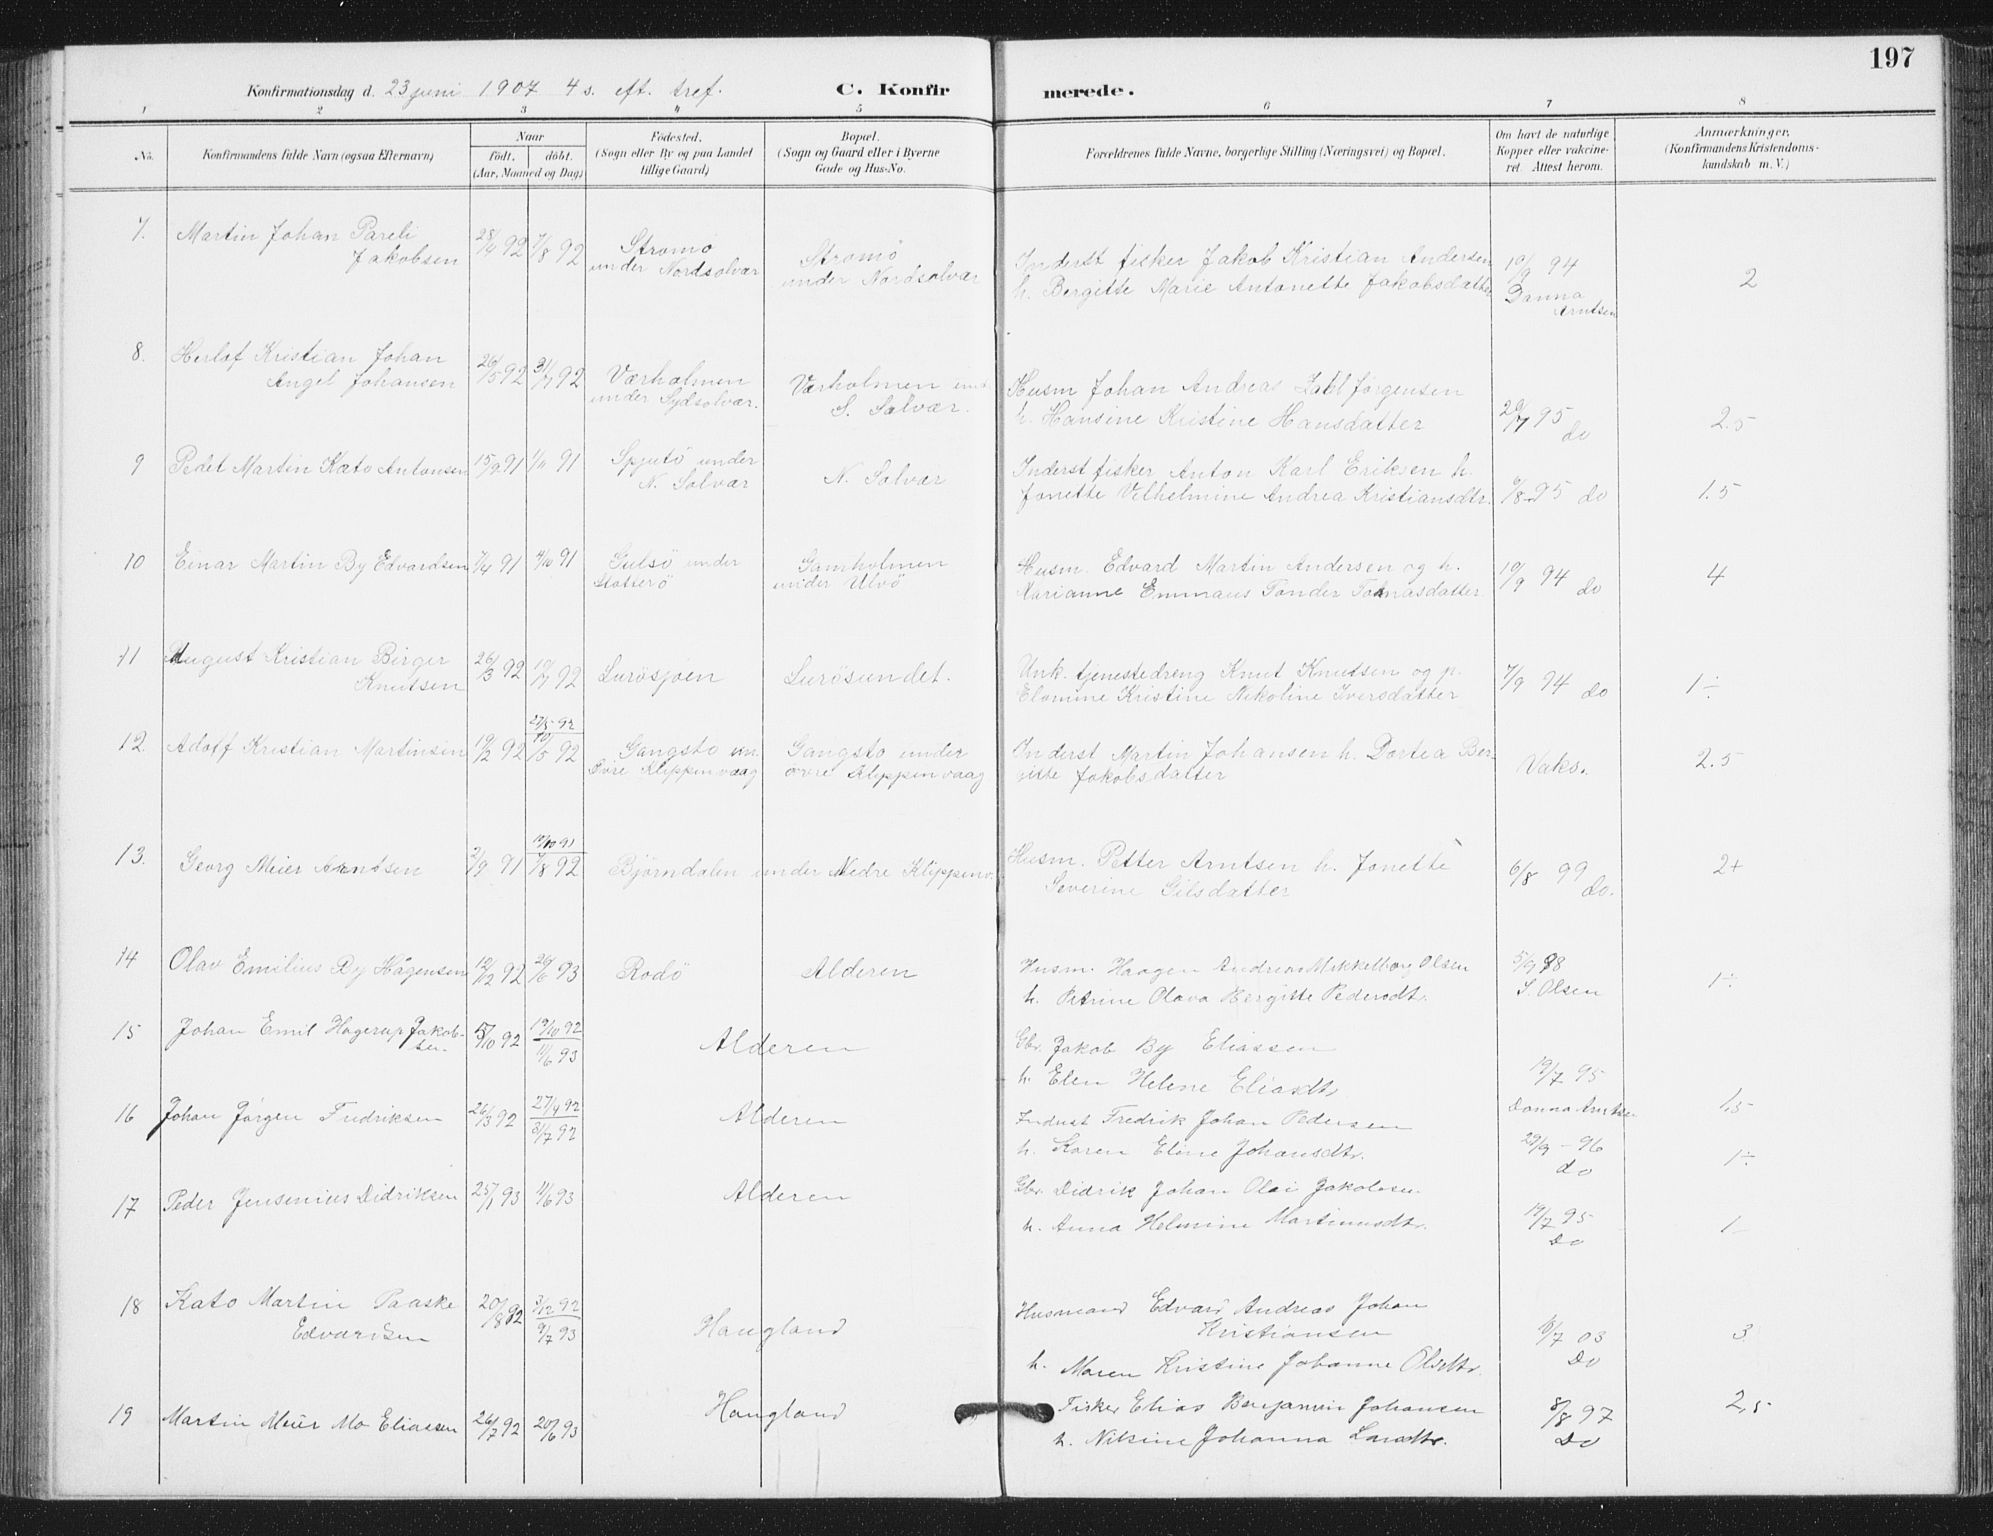 197
Konfirmationsdag d. 23 juni 1907 4 s. eft. tref. C. Konfirmerede.
1 2 3 4 5 6 7 8
No. Konfirmandens fulde Navn (ogsaa Efternavn) Naar Födested. Bopæl. Forældrenes fulde Navne, borgerlige Stilling (Næringsvei) og Bopæl. Om havt de naturlige Anmærkninger.
födt. döbt. (Sogn eller By og paa Landet (Sogn og Gaard eller i Byerne Kopper eller vakcine- (Konfirmandens Kristendoms-
(Aar, Maaned og Dag) tillige Gaard) Gade og Hus-No. ret. Attest herom. kundskab m. V.)
7. Martin Johan Pareli 28/4 92 7/8 92 Stromö Stromö Inderst fisker Jakob Kristian Andersen 10/9 94 2
Jakobsen under Nordsolvær under Nordsolvær h. Bergitte Marie Antonette Jakobsdatter Danna Arntsen
8. Herlof Kristian Johan 26/5 92 31/7 92 Værholmen Værholmen und Husm Johan Andreas Zahl Jørgensen 2.5
Angel Johansen under Sydsolvær. S. Solvær. h. Hansine Kristine Hansdatter 20/7 95 do
9 Pedet Martin Kato Antonsen 15/9 91 1/11 91 Spjutö under N. Solvær Inderst fisker Anton Karl Eriksen h. 1.5
N. Solvær Jonette Vilhelmine Andrea Kristiansdtr. 6/8 95 do
10 Einar Martin By Edvardsen 7/4 91 4/10 91 Gulsö under Gamholmen Husm. Edvard Martin Andersen og h. 10/9 94 do 4
Slotterö under Ulvö Marianne Emmaus Tönder Tomasdatter
11 August Kristian Birger 26/3 92 10/7 92 Lurösjøen Lurösundet. Unk. tjenestedreng Knut Knutsen og p. 7/9 94 do 1 ÷
Knutsen Elomine Kristine Nikoline Iversdatter
27/3 92
12 Adolf Kristian Martinsen 19/2 92 10/5 92 Gangsto un. Gangsto under Inderst Martin Johansen h. Dortea Ber- Vaks. 2.5
Övre Klippinvaag övre Klippinvaag gitte Jakobsdatter
10/10 91
13. Georg Meier Arntsen 2/9 91 7/8 92 Björndalen under Nedre Klippinv. Husm. Petter Arntsen h. Jonette 6/8 99 do. 2+
Severine Gilsdatter
14 Olav Emilius By Hågensen 10/12 92 26/6 93 Rodö Alderen Husm. Haagen Andreas Mikkelborg Olsen 5/9 98 1÷
h. Petrine Olava Bergitte Pedersdtr. S. Olsen
15 Johan Emil Hagerup Jakob- 5/10 92 19/10 92 Alderen Gbr. Jakob By Eliassen
sen. 11/6 93 h. Elen Helene Eliasdtr 19/7 95
16 Johan Jørgen Fredriksen 26/3 92 27/4 92 Alderen Inderst Fredrik Johan Pedersen Danna Arntsen 1,5
31/7 92 h. Karen Eline Johansdtr. 29/9 - 96 do 1÷
17 Peder Jensenius Didriksen 25/1 93 11/6 93 Alderen Gbr. Didrik Johan Olai Jakobsen.
h. Anna Helmine Martinusdtr. 19/7 95 Do 1-
18 Kato Martin Paaske 20/8 92 3/12 92 Haugland Husmand Edvard Andreas Johan
Edvardsen 9/7 93 Kristiansen 6/7 03 Do 3
h. Maren Kristine Johanne Olsdtr.
19 Martin Meier Mo Eliassen 26/7 92 20/6 93 Haugland Fisker Elias Benjamin Johansen 8/8 97 Do 2,5
h. Nilsine Johanna Larsdtr.